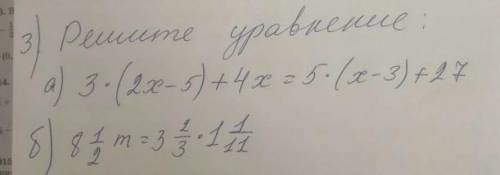 3) Решите уравнение:
а) 3·(2x-5)+4x=5·(x-3)+27
б) 8 1/2 m = 3 2/3 · 1 1/11